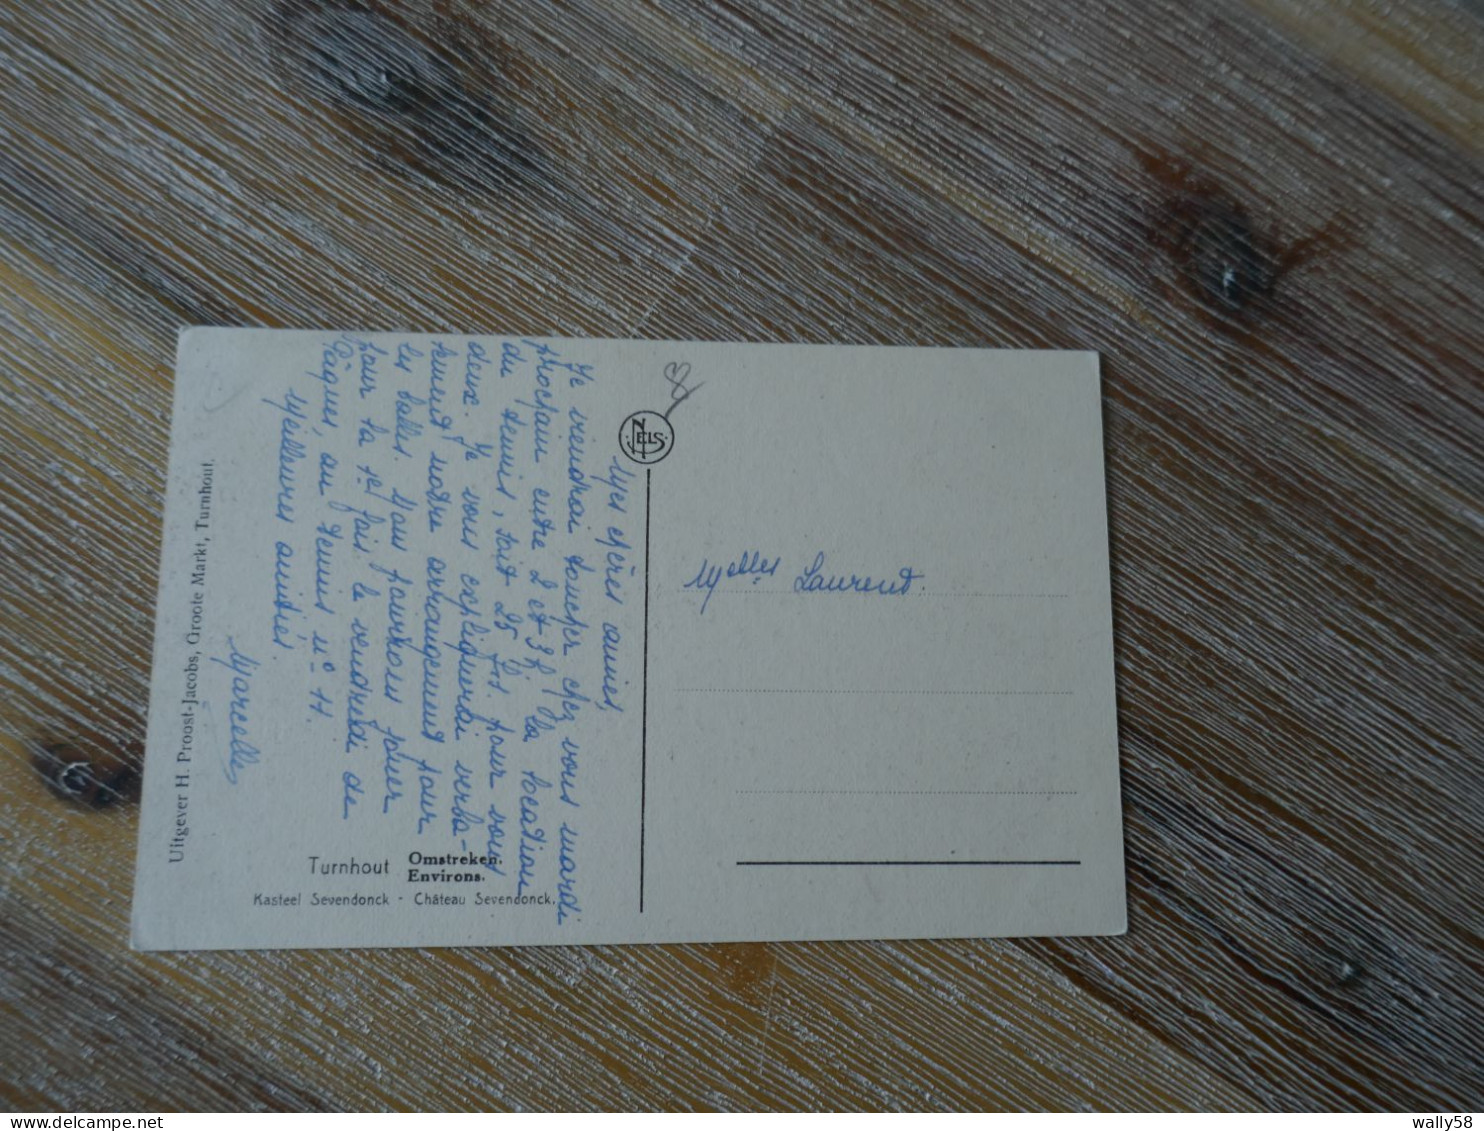 Mes chères amies,
Je viendrai toucher chez vous mardi
prochain entre 2 et 3 h la location
du tennis, soit 25 frs. pour vous
deux. Je vous expliquerai verba-
lement notre arrangement pour
les balles. Nous pourrons jouer
pour la 1e fois le vendredi de
Pâques, au tennis n° 11.
Meilleures amitiés.
Marcelle
Turnhout Omstreken.
Environs.
Kasteel Sevendonck - Château Sevendonck.
Uitgever H. Proost-Jacobs, Groote Markt, Turnhout.
NELS
Melles Laurent.
wally58